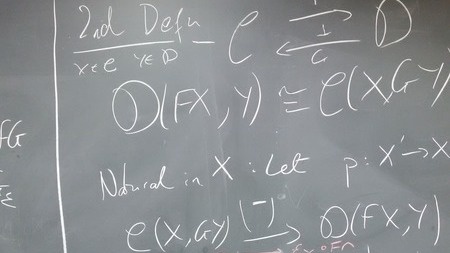 2nd Defn - C ⇄ D
F ⊥ G
X∈C Y∈D
D(FX, Y) ≅ C(X, GY)
Natural in X : Let p: X' → X
C(X, GY) (‾) → D(FX, Y)
FG